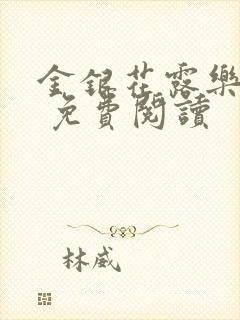 金銀花露樂
免費閱讀
林威